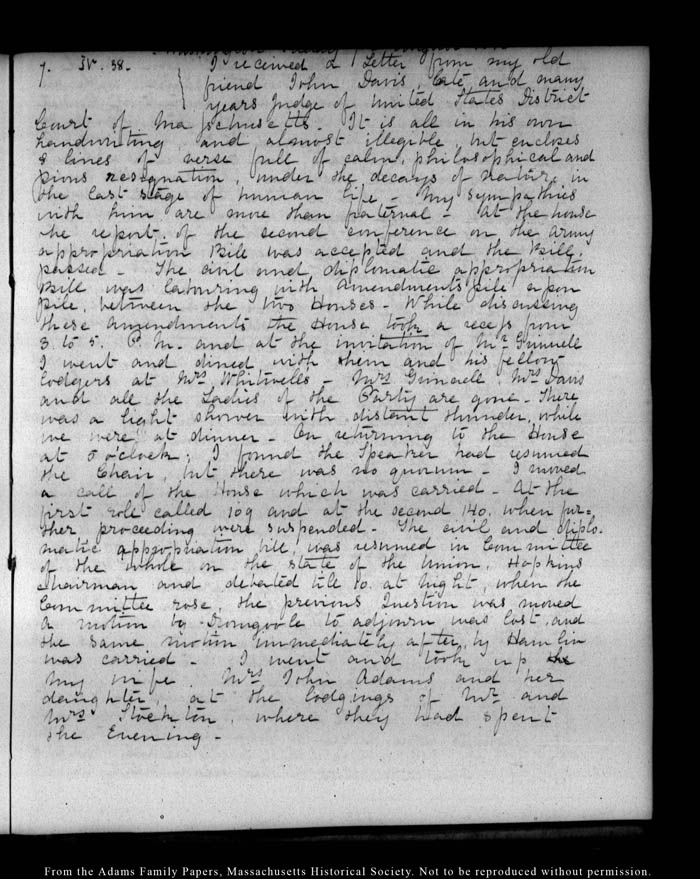 7. IV. 38. I received a Letter from my old
friend John Davis, late and many
years Judge of United States District
Court of Massachusetts. It is all in his own
handwriting, and almost illegible, but encloses
8 lines of verse full of calm, philosophical and
pious resignation, under the decays of Nature in
the last stage of human life - My sympathies
with him are more than fraternal - At the house
the report of the second conference on the Army
appropriation Bill was accepted and the Bill,
passed - The civil and diplomatic appropriation
Bill was labouring with Amendments pile upon
pile, between the two Houses - While discussing
these amendments the House took a recess from
3. to 5. P. M. and at the invitation of Mr Grinnell
I went and dined with them and his fellow
lodgers at Mrs Whitwells - Mrs Grinnell, Mrs Davis
and all the Ladies of the Party are gone - There
was a light shower with distant thunder, while
we were at dinner - On returning to the House
at 5 o'clock; I found the Speaker had resumed
the Chair, but there was no quorum - I moved
a call of the House which was carried - At the
first role called 109 and at the second 140. when fur=
ther proceeding were suspended - The civil and diplo-
matic appropriation bill, was resumed in Committee
of the whole on the state of the Union, Hopkins
Chairman and debated till 10. at Night, when the
Committee rose, the previous Question was moved
a motion by Dromgoole to adjourn was lost, and
the same motion immediately after, by Hamlin
was carried - I went and took up the
my wife, Mrs John Adams and her
daughter, at the lodgings of Mr and
Mrs Stockton, where they had spent
the Evening -
From the Adams Family Papers, Massachusetts Historical Society. Not to be reproduced without permission.